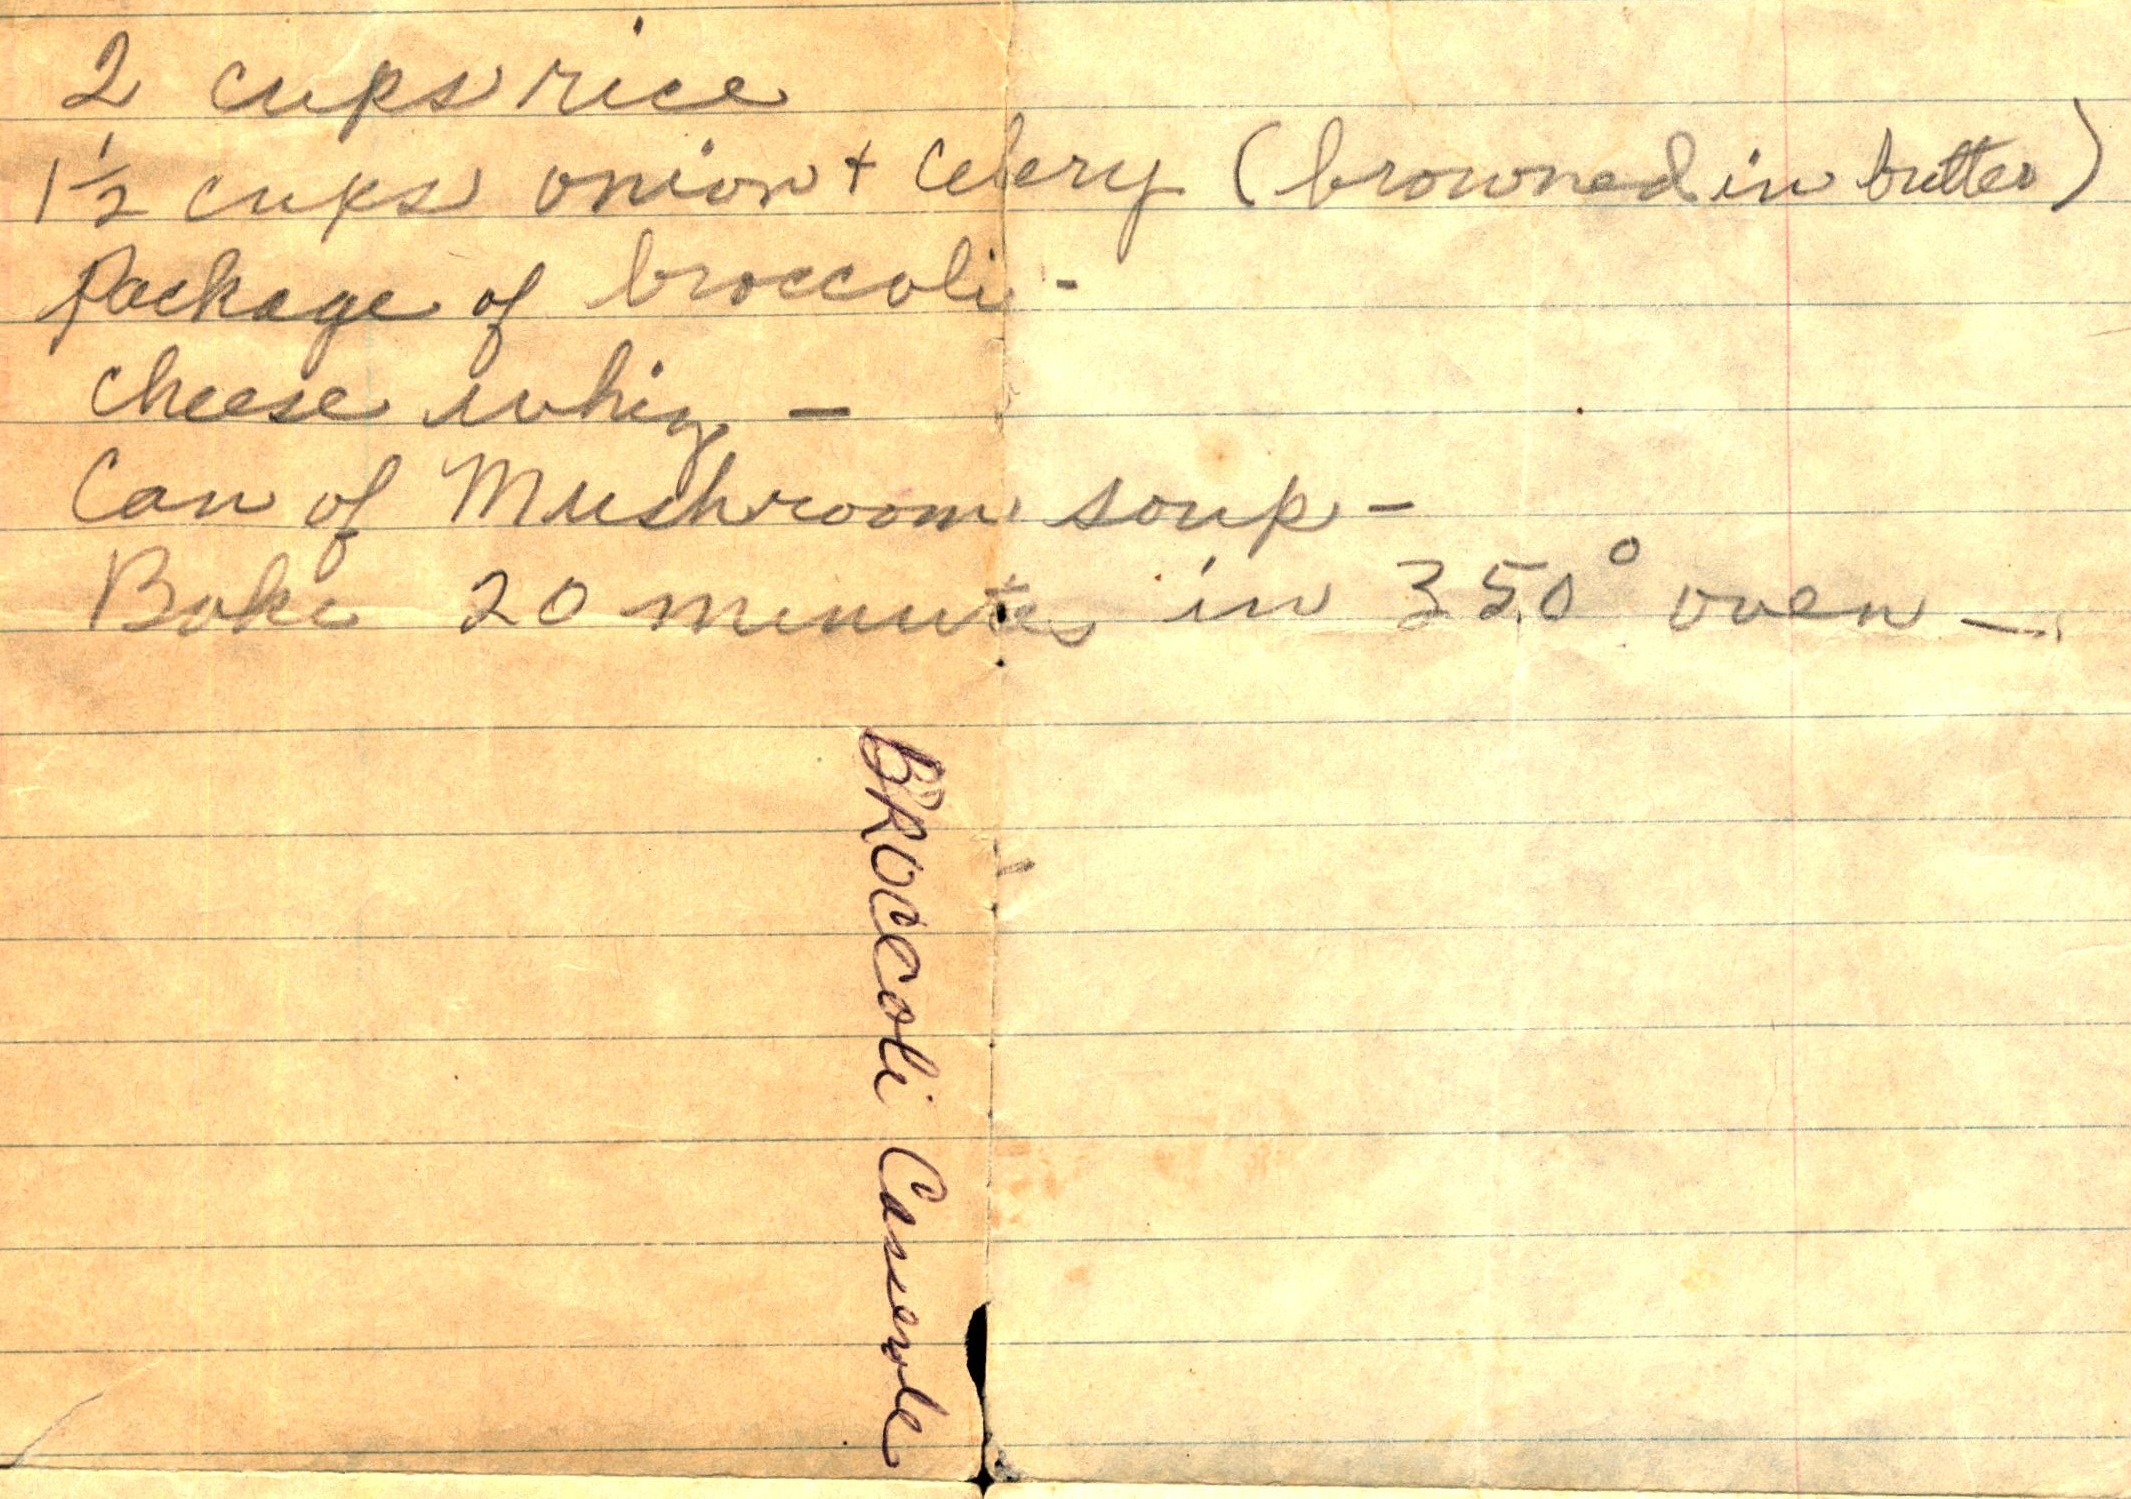 2 cups rice
1 1/2 cups onion + Celery (browned in butter)
Package of broccoli -
cheese whiz -
Can of Mushroom soup -
Bake 20 minutes in 350° oven -
BROCCOLi Casserole